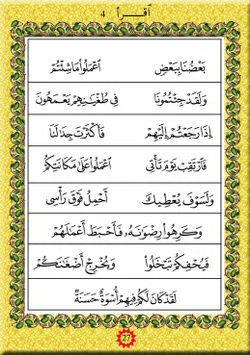 أقرأ 4
بَعْضُنَا بِبَعْضٍ اعْمَلُوا مَا شِئْتُمْ
وَلَقَدْ جِئْتُمُونَا فِي طُغْيَٰنِهِمْ يَعْمَهُونَ
إِذَا رَجَعْتُمْ إِلَيْهِمْ فَأَكْثَرْتَ جِدَٰلَنَا
فَارْتَقِبْ يَوْمَ تَأْتِي اعْمَلُوا عَلَىٰ مَكَانَتِكُمْ
وَلَسَوْفَ يُعْطِيكَ أَحْمِلُ فَوْقَ رَأْسِي
وَكَرِهُوا رِضْوَٰنَهُ، فَأَحْبَطَ أَعْمَٰلَهُمْ
فَيُحْفِكُمْ تَبْخَلُوا وَيُخْرِجْ أَضْغَٰنَكُمْ
لَقَدْ كَانَ لَكُمْ فِيهِمْ أُسْوَةٌ حَسَنَةٌ
27